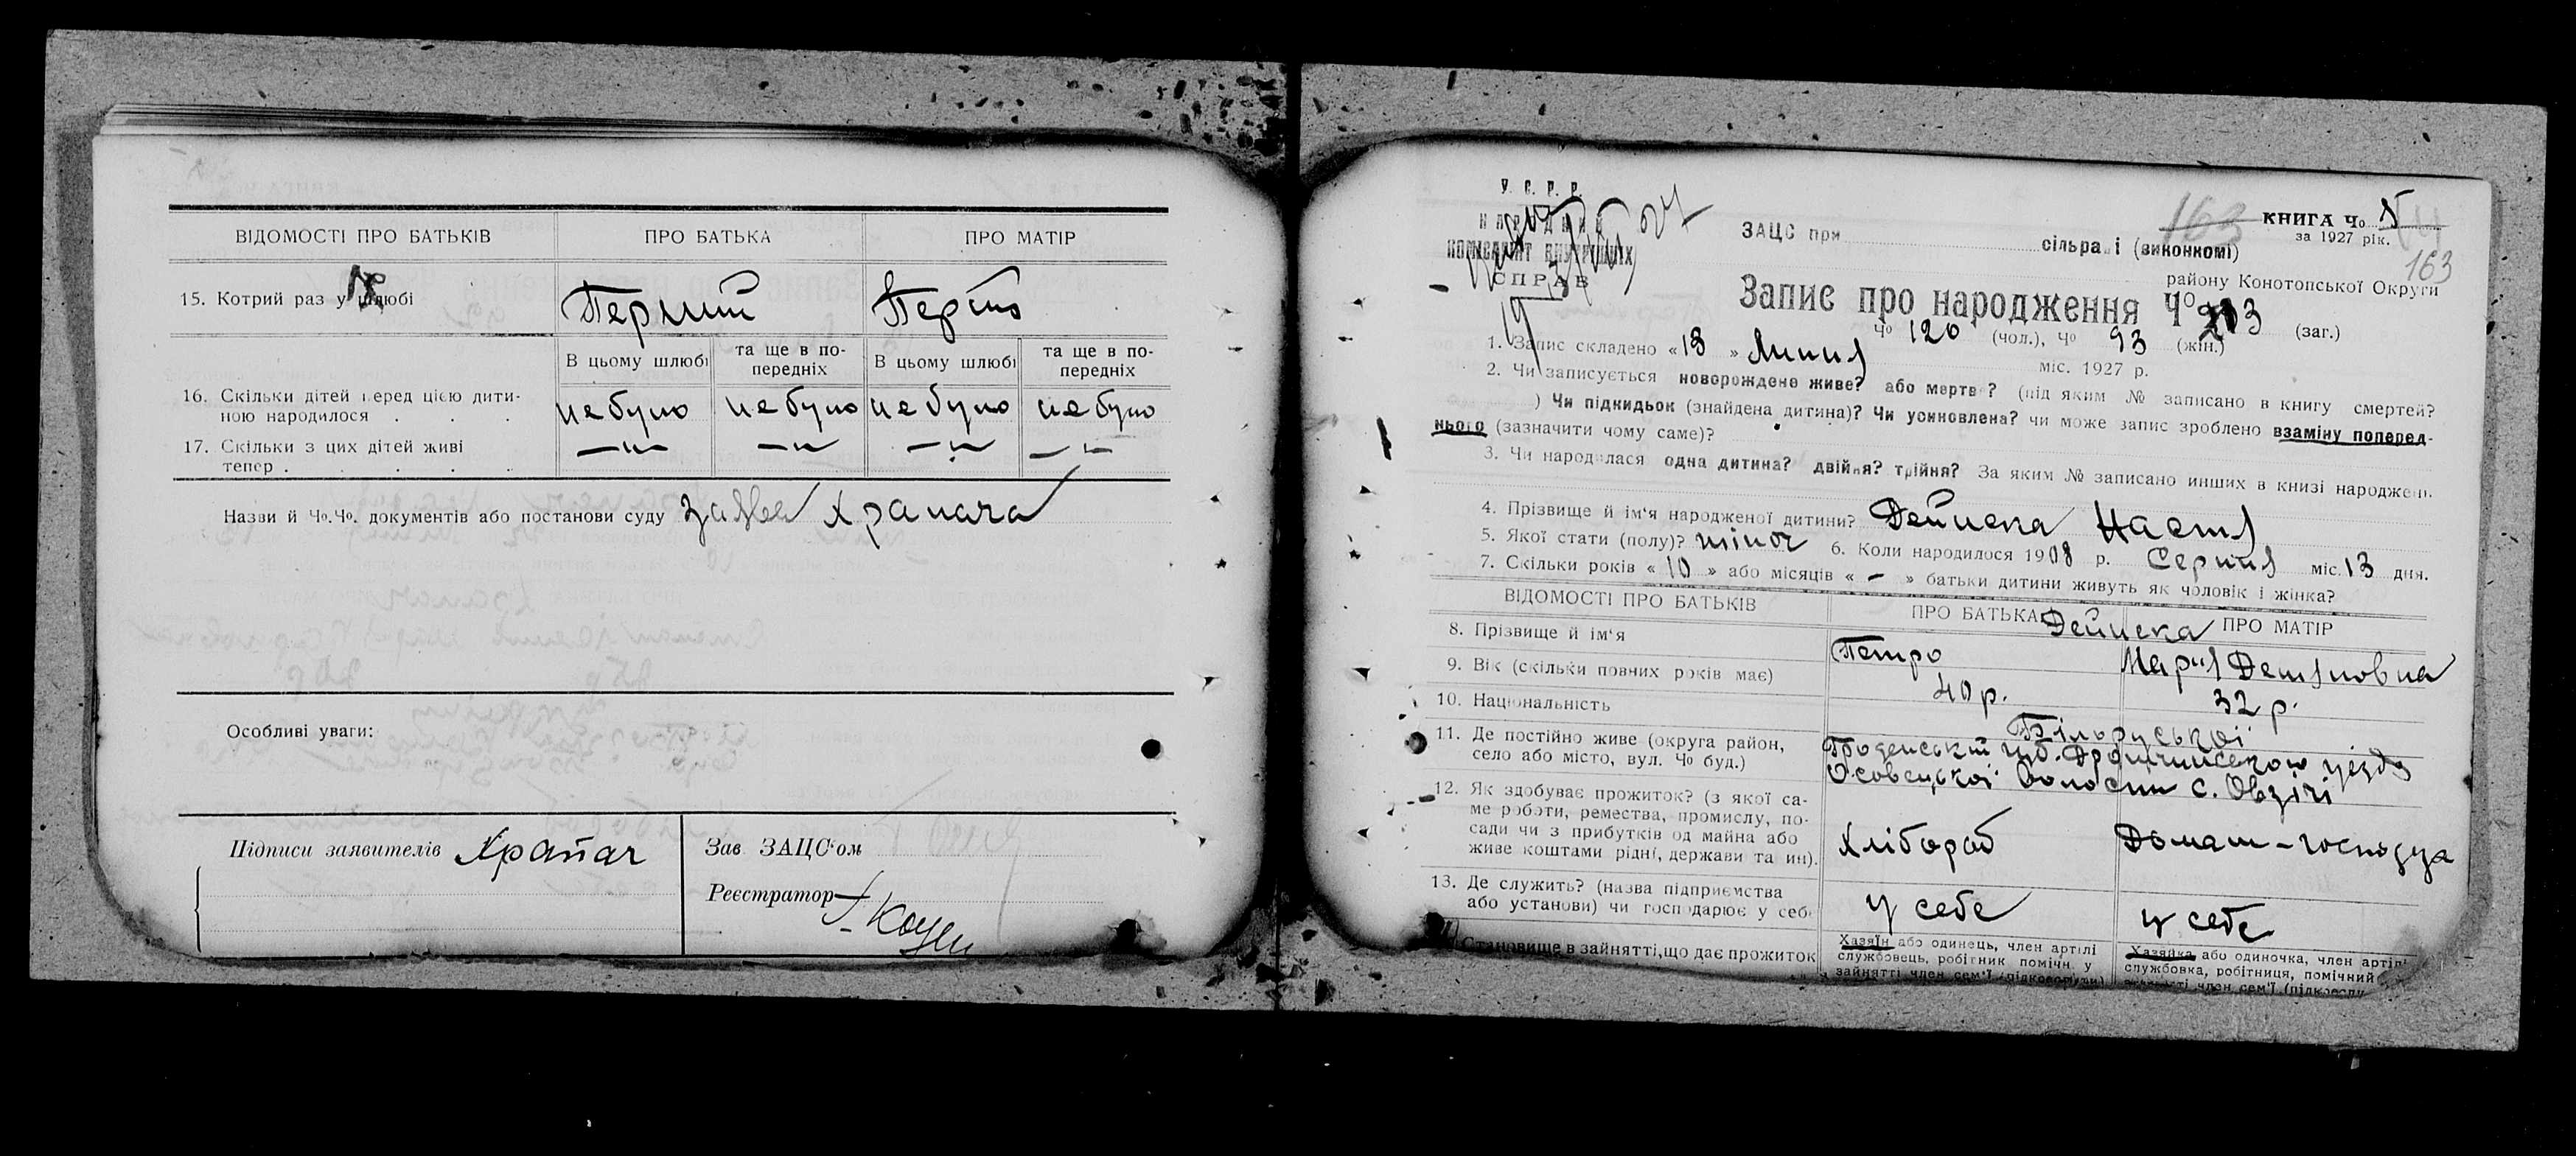 ВІДОМОСТІ ПРО БАТЬКІВ ПРО БАТЬКА ПРО МАТІР
15. Котрий раз у шлюбі Перший
В цьому шлюбі та ще в по-передніх В цьому шлюбі та ще в по-передніх
16. Скільки дітей перед цією дити-
ною народилося не було не було не було не було
17. Скільки з цих дітей живі
тепер — " — — " — — " — — " —
Назви й Чо.Чо. документів або постанови суду заява Храпача
Особливі уваги:
Підписи заявителів Храпач
Зав ЗАЦС'ом
Реєстратор
У. С. Р. Р.
НАРОДНИЙ
КОМІСАРІЯТ ВНУТРІШНІХ
СПРАВ
ЗАЦС при сільраді (виконкомі)
163 КНИГА Чо 5
за 1927 рік.
163
району Конотопської Округи
Запис про народження Чо 213 (заг.)
Чо 120 (чол.), Чо 93 (жін.)
1. Запис складено «13» Липня міс. 1927 р.
2. Чи записується новорождене живе? або мертве? (під яким № записано в книгу смертей?
) Чи підкидьок (знайдена дитина)? Чи усиновлена? чи може запис зроблено взаміну поперед-
нього (зазначити чому саме)?
3. Чи народилася одна дитина? двійня? трійня? За яким № записано инших в книзі народжен.
4. Прізвище й ім'я народженої дитини? Дейнека Настя
5. Якої стати (полу)? жіноч 6. Коли народилося 1908 р. Серпня міс. 13 дня.
7. Скільки років «10» або місяців « – » батьки дитини живуть як чоловік і жінка?
ВІДОМОСТІ ПРО БАТЬКІВ ПРО БАТЬКА ПРО МАТІР
Дейнека
8. Прізвище й ім'я Петро Марія Демяновна
9. Вік (скільки повних років має) 40 р. 32 р.
10. Національність Більруської
11. Де постійно живе (округа район,
село або місто, вул. Чо буд.)
Гроденської губ. Дрогичинského уезда
Осовецької Волости с. Овзічі
12. Як здобуває прожиток? (з якої са-
ме роботи, ремества, промислу, по-
сади чи з прибутків од майна або
живе коштами рідні, держави та ин). Хлібороб Домаш-господа
13. Де служить? (назва підприємства
або установи) чи господарює у себе у себе у себе
Становище в зайнятті, що дає прожиток
Хазяїн або одинець, член артілі
службовець, робітник помічн. у
зайнятті член сем'ї (підкреслити)
Хазяйка або одиночка, член артілі
службовка, робітниця, помічний
член сем'ї